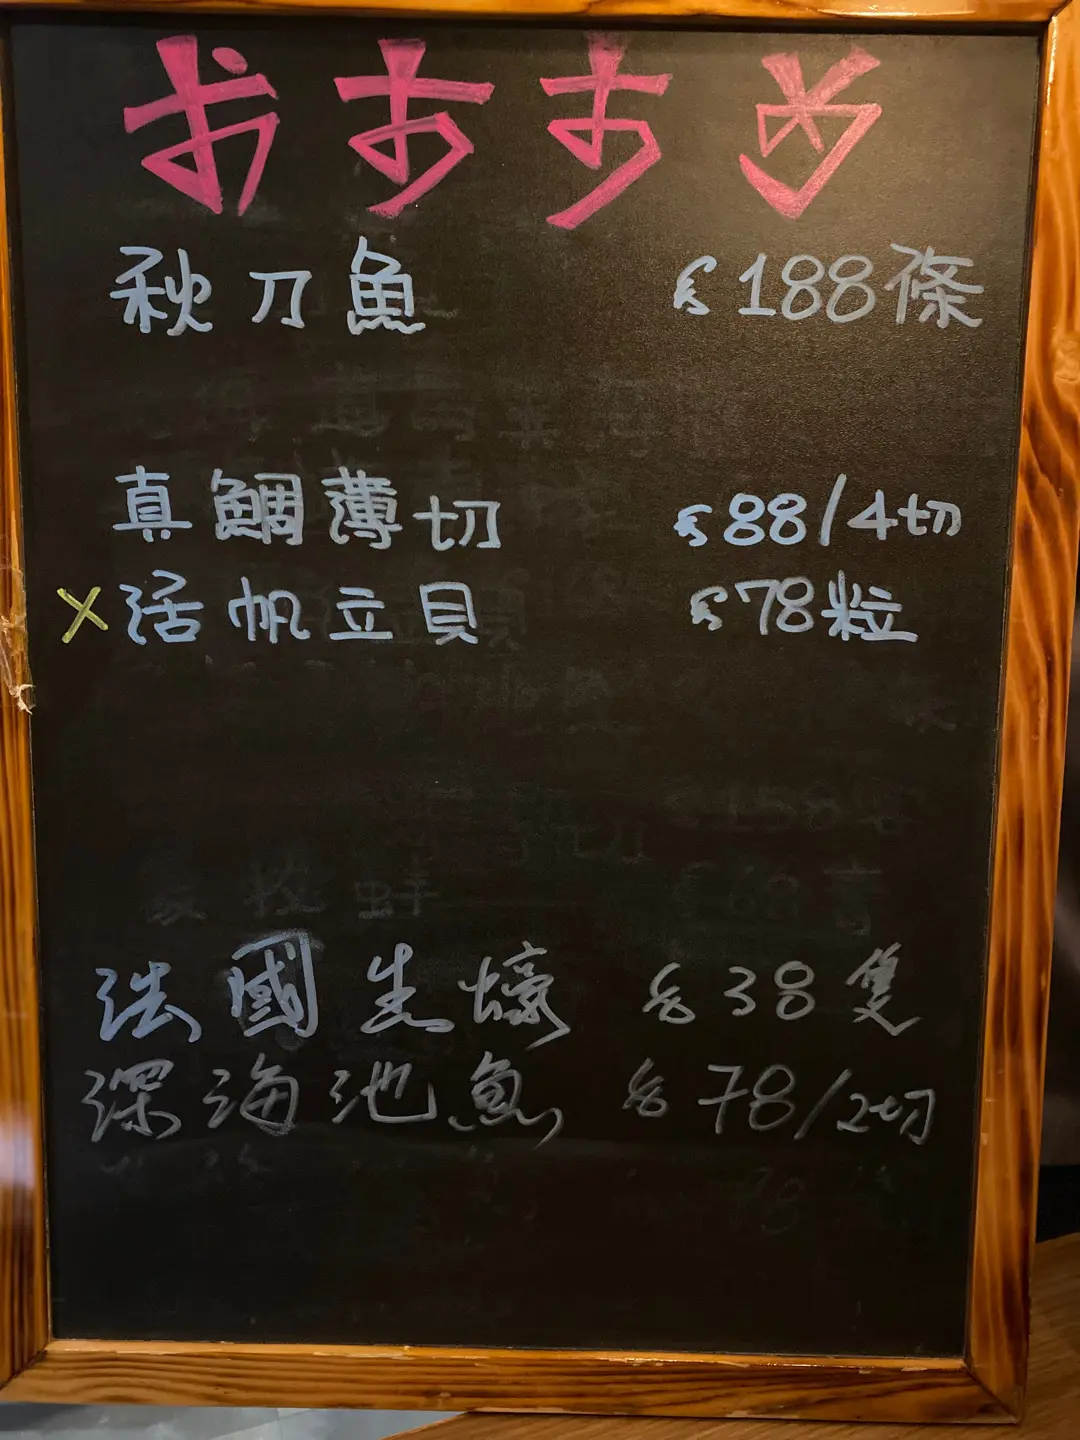 おすすめ
秋刀魚 $188條
真鯛薄切 $88/4切
X活帆立貝 $78粒
法國生蠔 $38隻
深海池魚 $78/2切